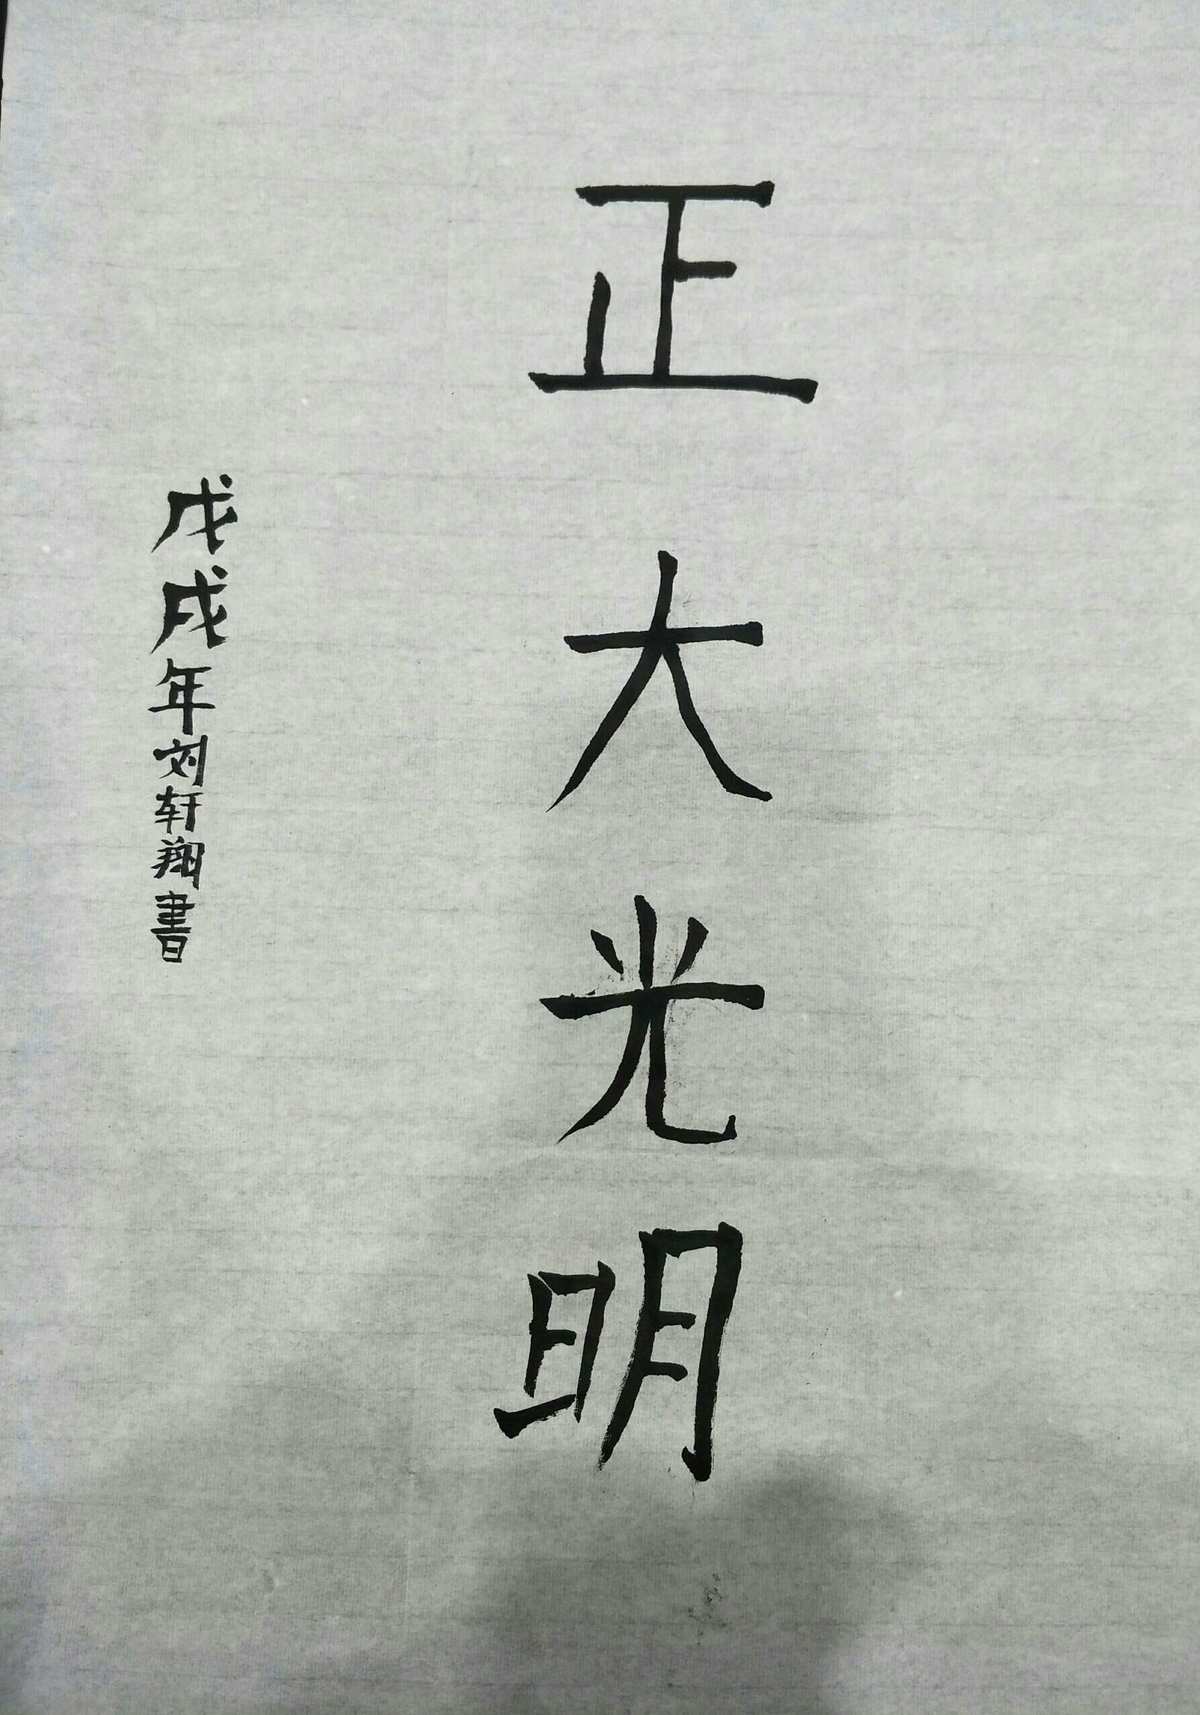 正大光明
戊戌年刘轩翔書